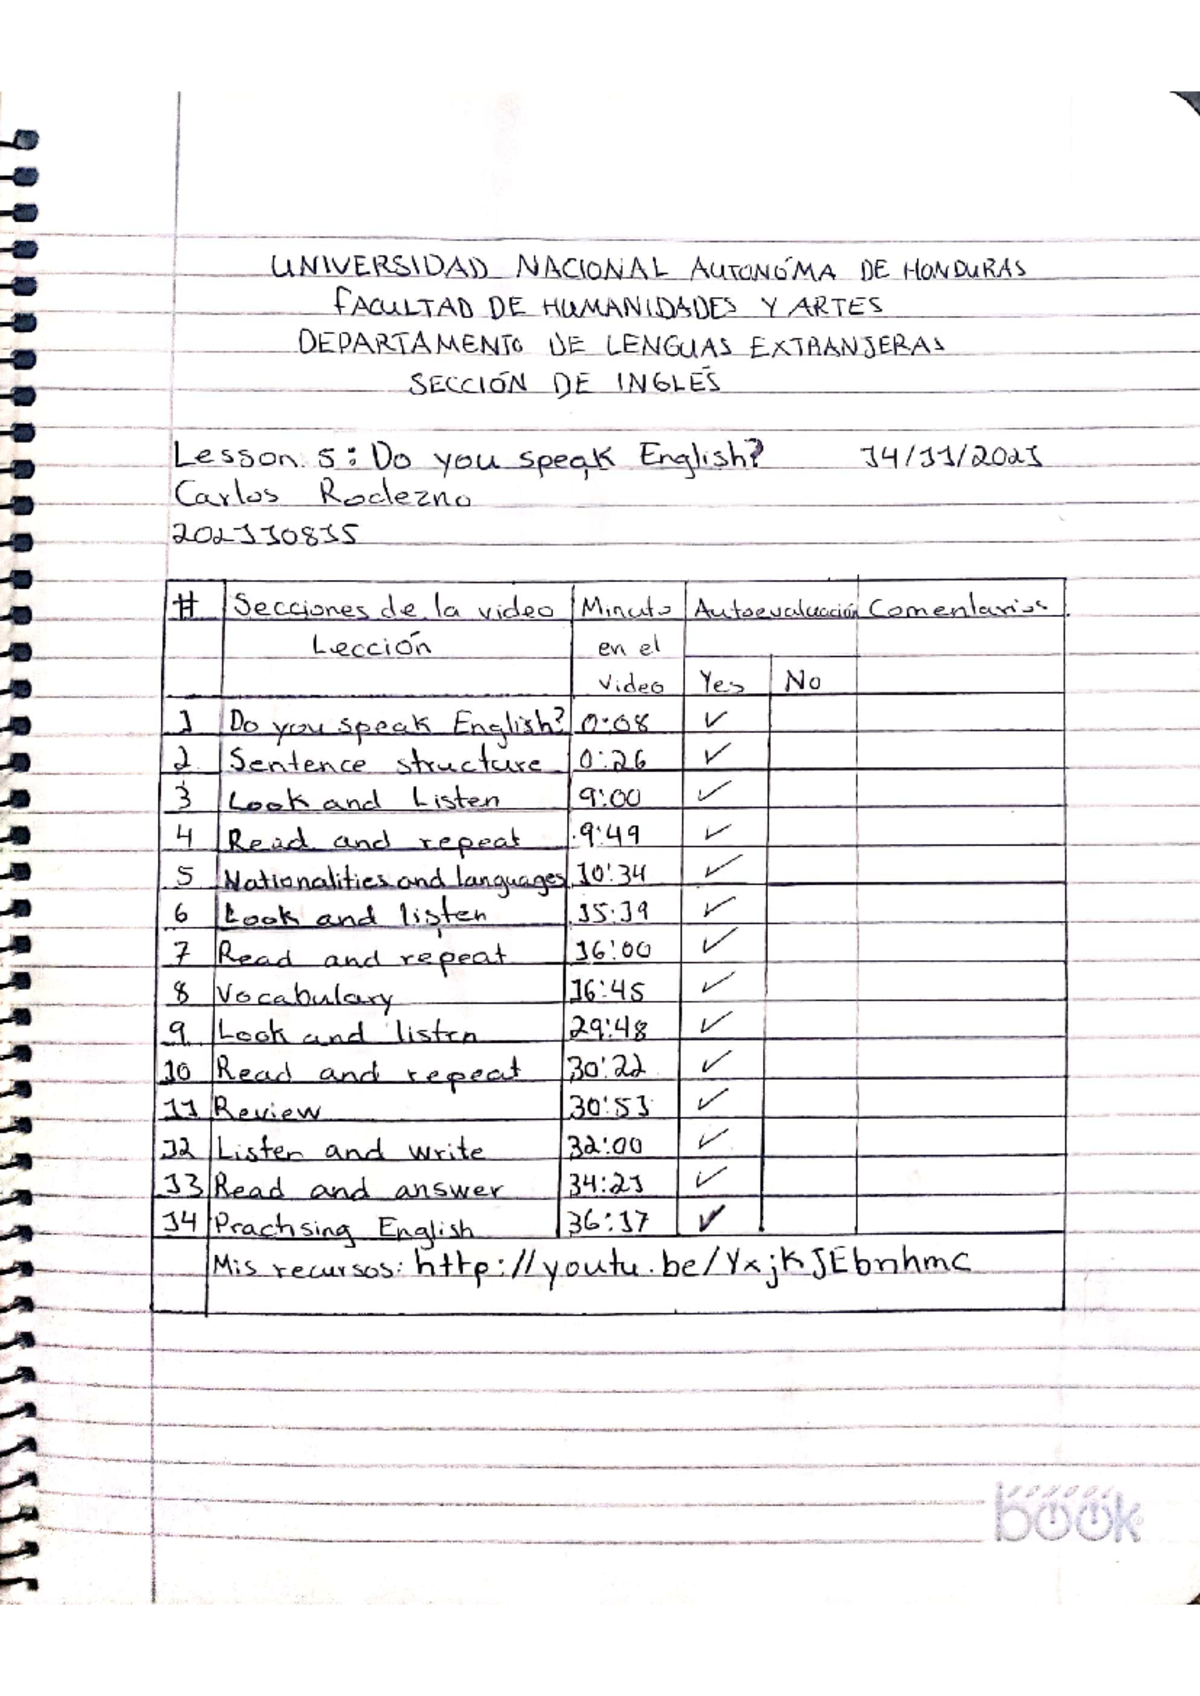 UNIVERSIDAD NACIONAL AUTONÓMA DE HONDURAS
FACULTAD DE HUMANIDADES Y ARTES
DEPARTAMENTO DE LENGUAS EXTRANJERAS
SECCIÓN DE INGLÉS
Lesson 5: Do you speak English? 14/11/2021
Carlos Rodezno
202110815
# Secciones de la video Minuto Autoevaluación Comentarios
Lección en el
Video Yes No
1 Do you speak English? 0:08 ✓
2 Sentence structure 0:26 ✓
3 Look and Listen 9:00 ✓
4 Read and repeat 9:49 ✓
5 Nationalities and languages 10:34 ✓
6 Look and listen 15:39 ✓
7 Read and repeat 16:00 ✓
8 Vocabulary 16:45 ✓
9 Look and listen 29:48 ✓
10 Read and repeat 30:22 ✓
11 Review 30:51 ✓
12 Listen and write 32:00 ✓
13 Read and answer 34:21 ✓
14 Practising English 36:17 ✓
Mis recursos: http://youtu.be/YxjKJEbnhmc
book